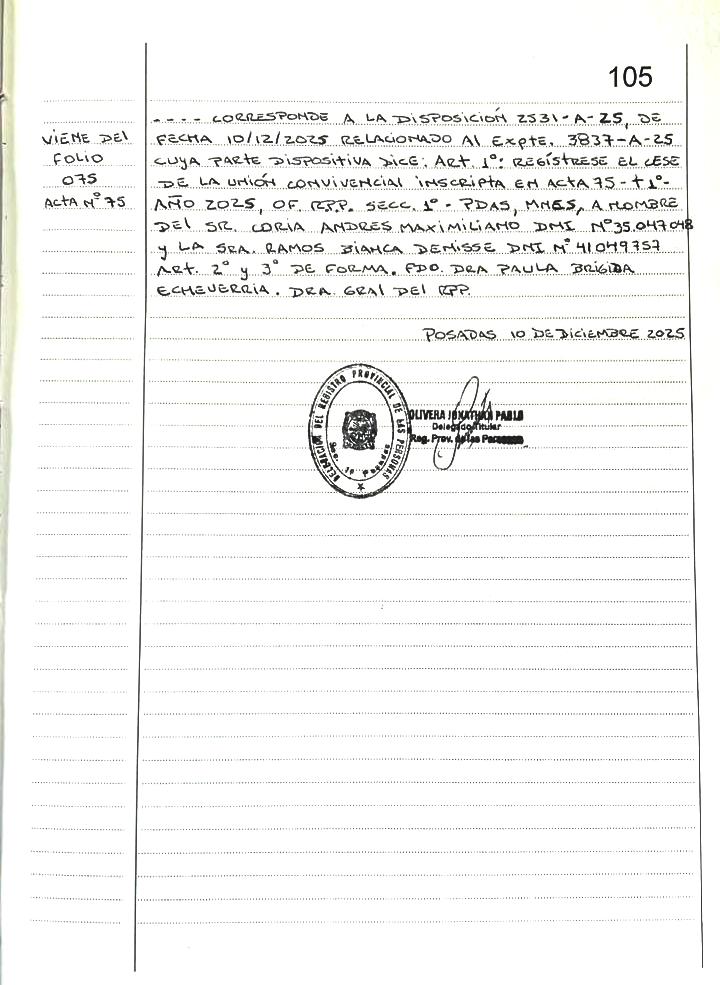 105
VIENE DEL
FOLIO
075
ACTA Nº 75
---- CORRESPONDE A LA DISPOSICIÓN 2531-A-25, DE
FECHA 10/12/2025 RELACIONADO AL EXPTE. 3837-A-25
CUYA PARTE DISPOSITIVA DICE: ART. 1º: REGÍSTRESE EL CESE
DE LA UNIÓN CONVIVENCIAL INSCRIPTA EN ACTA 75 - T 1º-
AÑO 2025, OF. RPP. SECC. 1º - PDAS, MNES, A NOMBRE
DEL SR. CORIA ANDRES MAXIMILIANO DNI Nº 35.047048
Y LA SRA. RAMOS BIANCA DENISSE DNI Nº 41049757
ART. 2º Y 3º DE FORMA. FDO. DRA PAULA BRIGIDA
ECHEVERRÍA. DRA. GRAL DEL RPP.
POSADAS 10 DE DICIEMBRE 2025
DELEGACIÓN DEL REGISTRO PROVINCIAL DE LAS PERSONAS
Sec. 1º Posadas
OLIVERA JONATHAN PABLO
Delegado Titular
Reg. Prov. de las Personas